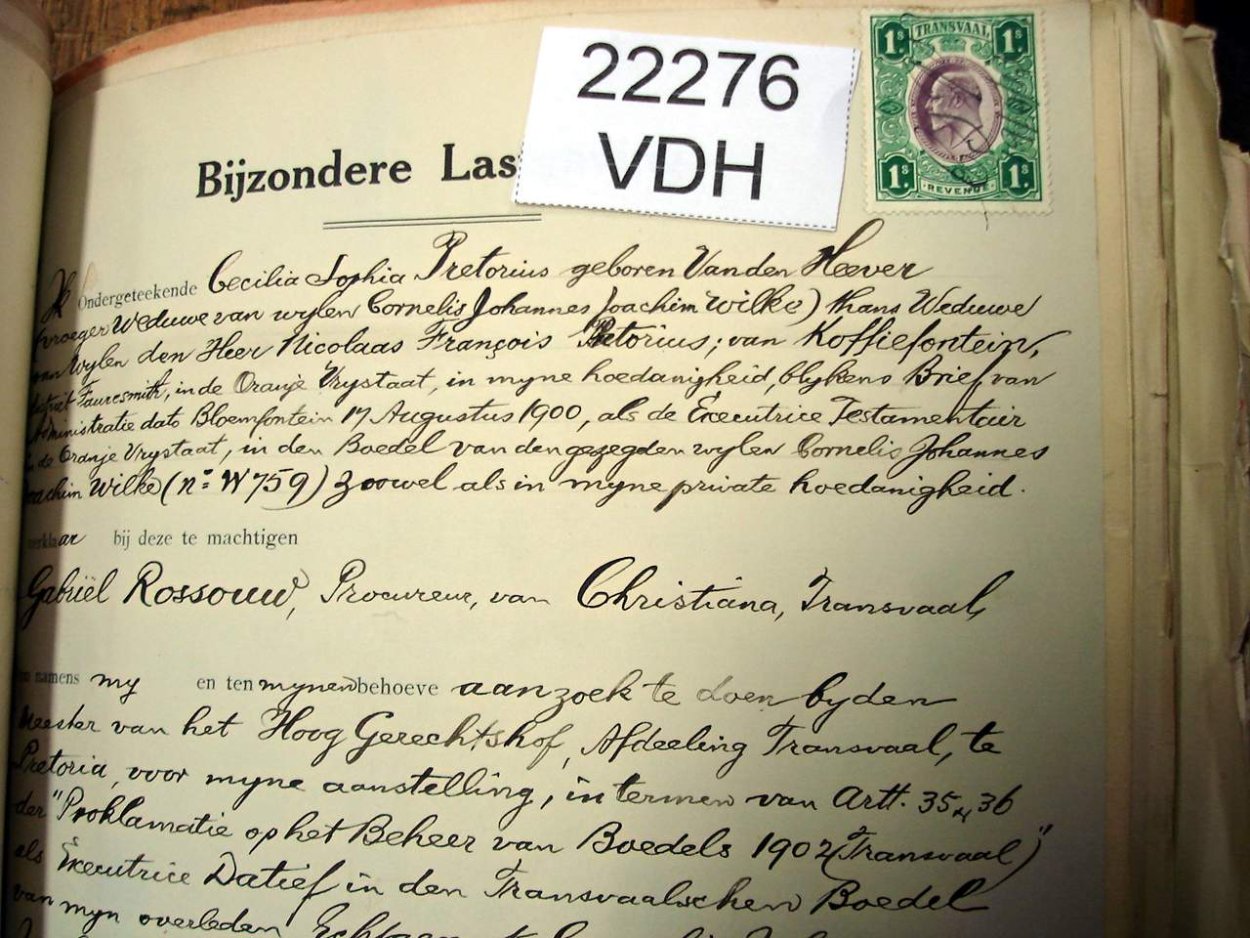 22276
VDH
1s TRANSVAAL 1s
1s. REVENUE 1s.
Bijzondere Las
Ik Ondergeteekende Cecilia Sophia Pretorius geboren Van den Heever
(vroeger Weduwe van wylen Cornelis Johannes Joachim Wilke) thans Weduwe
van Wylen den Heer Nicolaas François Pretorius; van Koffiefontein,
district Fauresmith, in de Oranje Vrystaat, in myne hoedanigheid, blykens Brief van
Administratie dato Bloemfontein 17 Augustus 1900, als de Executrice Testamentair
in de Oranje Vrystaat, in den Boedel van den gezegden wylen Cornelis Johannes
Joachim Wilke (no W 759) zoowel als in myne private hoedanigheid.
verklaar bij deze te machtigen
Gabriël Rossouw, Procureur, van Christiana, Transvaal,
namens my en ten mynen behoeve aanzoek te doen by den
Meester van het Hoog Gerechtshof, Afdeeling Transvaal, te
Pretoria, voor myne aanstelling, in termen van Artt. 35 & 36
der "Proklamatie op het Beheer van Boedels 1902 (Transvaal)"
als Executrice Datief in den Transvaalschen Boedel
van myn overleden Echtgenoot